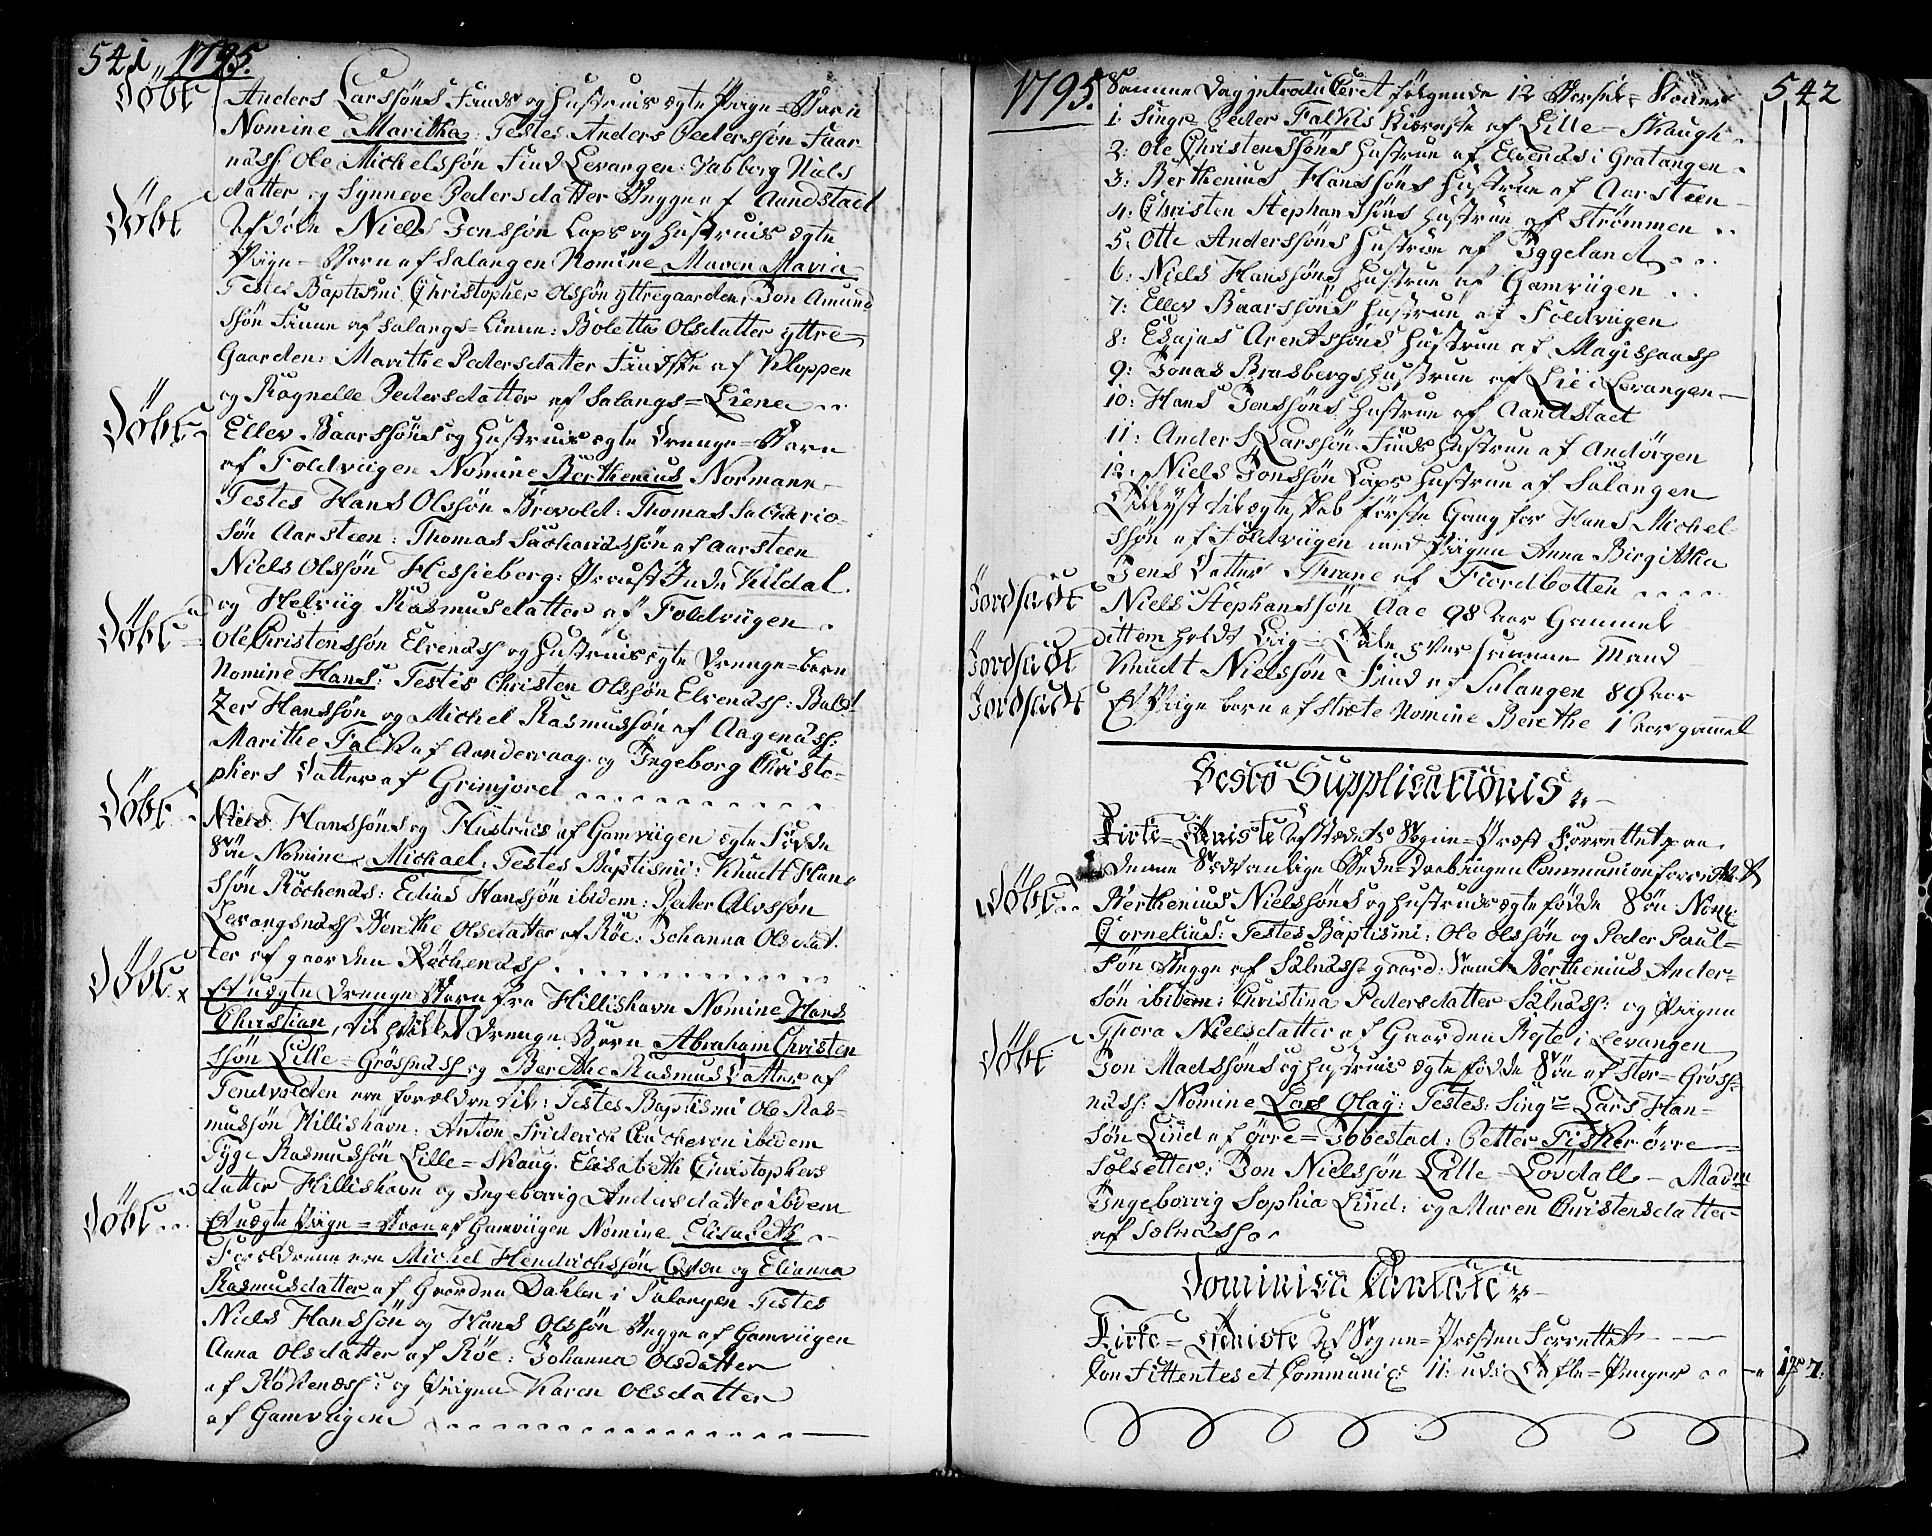 541 1795.
Døbt Anders Larssöns Finds og Hustrues ægte Piige-Barn
Nomine Maritha: Testes Anders Pederssön Faar
næss: Ole Michelssön Find Levangen: Vabborg Niels
datter og Synneve Pedersdatter Bygge af Aandstad
Døbt Afdöde Niels Jonssön Laps og Hustrues ægte
Piige-Barn af Salangen Nomine Maren Maria
Testes Baptismi Christopher Olssön yttregaarden, Jon Amund
ssön Finne af Salangs-Linne: Boletta Olsdatter yttre
Gaarden: Marithe Pedersdatter Findske af Kloppen
og Ragnelle Pedersdatter af Salangs=Liene
Døbt Ellev Baarssöns og Hustrues ægte Drenge-Barn
af Foldviigen Nomine Berthenius Normann
Testes Hans Olssön Brevold: Thomas Sacharia
sön Aarsteen: Thomas Sachariassön af Aarsteen
Niels Olssön Hessieberg: Kildal
og Helviig Rasmusdatter af Foldviigen
Døbt Ole Christenssön Elvenæss og Hustrues ægte Drenge=barn
Nomine Hans: Testis Christen Olssön Elvenæss: Balt
Zer Hanssön og Michel Rasmussön af Aagenæss:
Marithe Falk af Aandervaag og Ingeborg Christo-
phers Datter af Grimjord
Døbt Niels Hanssöns og Hustrues af Gamviigen ægte Födde
Sön Nomine Michael: Testes Baptismi: Knudt Han
ssön Röchenæs: Edias Hanssön ibidem: Peter Alvssön
Levangsnæss Berethe Olsdatter af Röe: Johanna Olsdat
ter af gaarden Röchenæss
Døbt Et uægte Drenge Barn fra Hillishavn Nomine Hans
Christian, til hvilket Drenge Barn Abraham Christen
ssön Lille=Grössnæss og Berethe Rasmus Datter af
Tendvolden ere forældre til: Testes Baptismi Ole Ras-
mussön Hillishavn: Anton Friderich ibidem
Tyge Rasmussön Lille=Skaug. Elisabeth Christophers
datter Hillishavn og Ingeborrig Andersdatter ibidem
Døbt Et uægte Piige=Barn af Gamviigen Nomine Elisabeth
Forældrene ere Michel Hendrichssön Qvæn og Elianna
Rasmusdatter af Gaarden Dahlen i Salangen Testes
Niels Hanssön og Hans Olssön Begge af Gamviigen
Anna Olsdatter af Röe: Johanna Olsdatter
af Rökenæss: og Piigen Karen Olsdatter
af Gamviigen
1795. Samme Dag introduceret fölgende 12 Barsel-Koner 542
1: Singr Peder Falchs Kiereste af Lille=Skaugh
2: Ole Christenssöns Hustrue af Elvenæs i Gratangen
3: Berthenius Hanssöns Hustrue af Aarsteen
4: Christen Stephanssöns Hustrue af Strömmen
5: Otte Anderssöns Hustrue af Yggeland
6: Niels Hanssöns Hustrue af Gamviigen
7: Ellev Baarssöns Hustrue af Foldviigen
8: Esajas Arentssöns Hustrue af
9: Jonas Brasbergs Hustrue af Lie i Levangen
10: Hans Jenssöns Hustrue af Aandstad
11: Anders Larssön Finds Hustrue af Andörgen
12: Niels Jonssön Laps Hustrue af Salangen
Tillyst til ægteskab förste Gang for Hans Michel
ssön af Foldviigen med Piigen Anna Birgitha
Jens Datter Thrane af Fiordbotten
Jordfæstet Niels Stephanssön Aae 98 Aar Gammel
item holdt Liig=Tale over samme Mand
Jordfæstet Knudt Nielssön Find af Salangen 89 Aar
Jordfæstet Et Piige barn af Stræte Nomine Berethe 1 Aar gammel
Festo Supplicationis
Kirke=Tieniste af Stædets Sogne=Præst Forrettet paa
Denne Sedvanlige Bede=Dag ingen Communion forrettet
Døbt Berthenius Nielssöns og Hustrues ægte födde Sön Nom:
Cornelius: Testes Baptismi: Ole Olssön og Peder Paul-
sön Begge af Salnæss gaard: samt Berthenius Ander-
sön ibidem: Christina Pedersdatter Salnæss: og Piigen
Thora Nielsdatter af Gaarden Rgte i Levangen
Døbt Jon Madssöns og Hustrues ægte födde Sön af Stor=Gröss-
næss: Nomine Lars Olay: Testes: Singr Lars Han-
sön Lind af örre=Ibbestad: Petter Fisker örre
Sölsetter: Jon Nielssön Lille Lövdall - Madm
Ingeborrig Sophia Lind: og Maren Christensdatter
af Sælnæss
Dominica Cantate
Kirke=Tieniste af Sogne=Præsten Forrettet
Confittentes et Communic: 11: udi Tafle=Penger